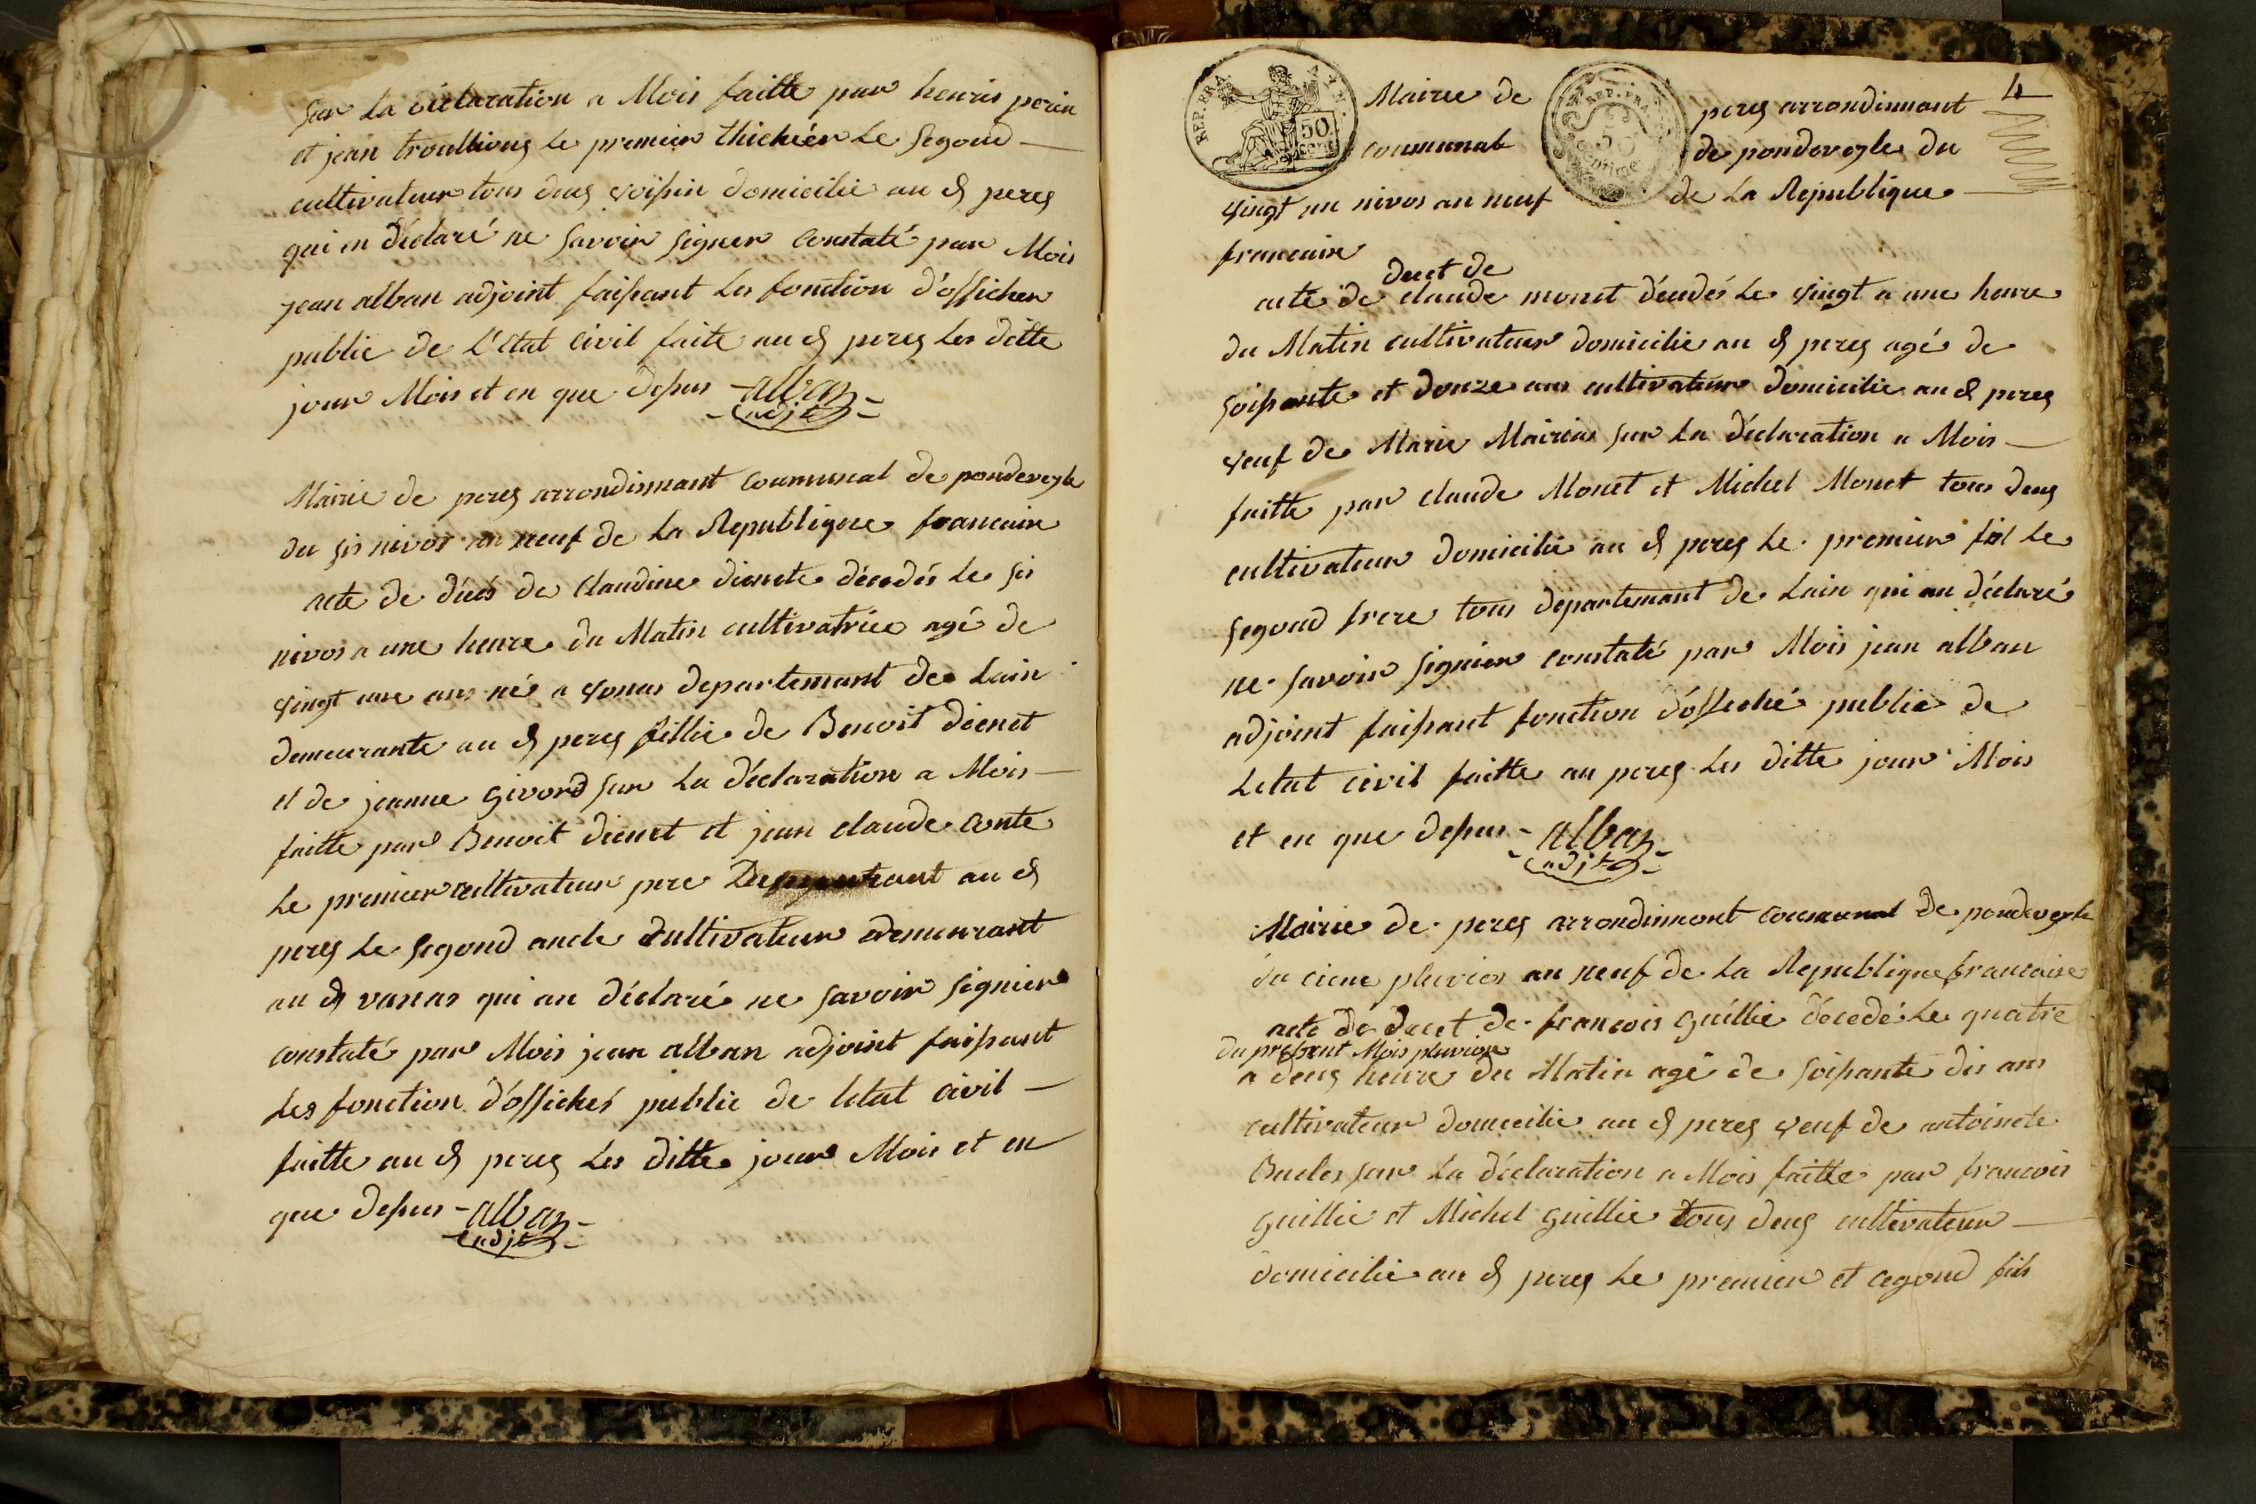 sur la déclaration a Mois faitte par henris perin
et jean troullious le premier thichiér le segond
cultivateur tous deus voissin domicilié au d perey
qui on déclaré ne savoir signer constaté par Mois
jean alban adjoint faissant les fonction d'officher
public de L'etat civil faite au d perey les ditte
jour Mois et en que dessus alban
adjt
Mairie de perey arrondismant communal de pondeveyle
du sis nivos an neuf de la Republique francaise
acte de décés de Claudine dienete décedés le sis
nivos a une heure du Matin cultivatrice agé de
vingt une ans né a vonas departemant de Lain
demeurante au d perey fillie de Benoit dienet
et de jeanne Givord sur la déclaration a Mois
faitte par Benoit dienet et jean claude conte
le premier cultivateur pere au d
perey le segond oncle cultivateur demeurant
au d vanas qui on déclaré ne savoir signier
constaté par Mois jean alban adjoint faissant
les fonction d'offichés public de letat civil
faitte au d perey les ditte jour Mois et en
que dessus alban
adjt
4
REP. FRA.
50
cent
REP. FRA.
Mairie de perey arrondismant
communal de pondeveyle du
vingt un nivos an neuf de la Republique
francaise
decet de
acte de claude monet décedés le vingt a une heure
du Matin cultivateur domicilié au d perey agé de
soissante et douze ans cultivateur domicilié au d perey
veuf de Marie Mairian sur la déclaration a Mois
faitte par claude Monet et Michel Monet tous deus
cultivateur domicilié au d perey le premier fil le
segond frere tous departemant de Lain qui on déclaré
ne savoir signier constaté par Mois jean alban
adjoint faissant fonction d'offiché public de
Letat civil faitte au perey les ditte jour Mois
et en que dessus alban
adjt
Mairie de perey arrondismant communal de pondeveyle
du cienc pluvios an neuf de la Republique francaise
acte de decet de francois Guillié décedé le quatre
du present Mois pluvios
a deus heure du Matin agé de soissante dis ans
cultivateur domicilié au d perey veuf de antoinete
Bucles sur la déclaration a Mois faitte par francois
guillié et Michel guillié tous deus cultivateur
domicilié au d perey le premier et cegond fils